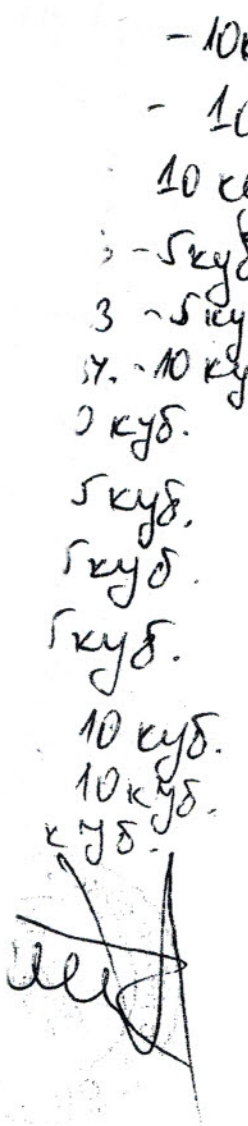 - 10
- 10
10 к
- 5 куб
3 - 5 ку
- 10 ку
0 куб.
5 куб.
5 куб.
5 куб.
10 куб.
10 куб.
куб.